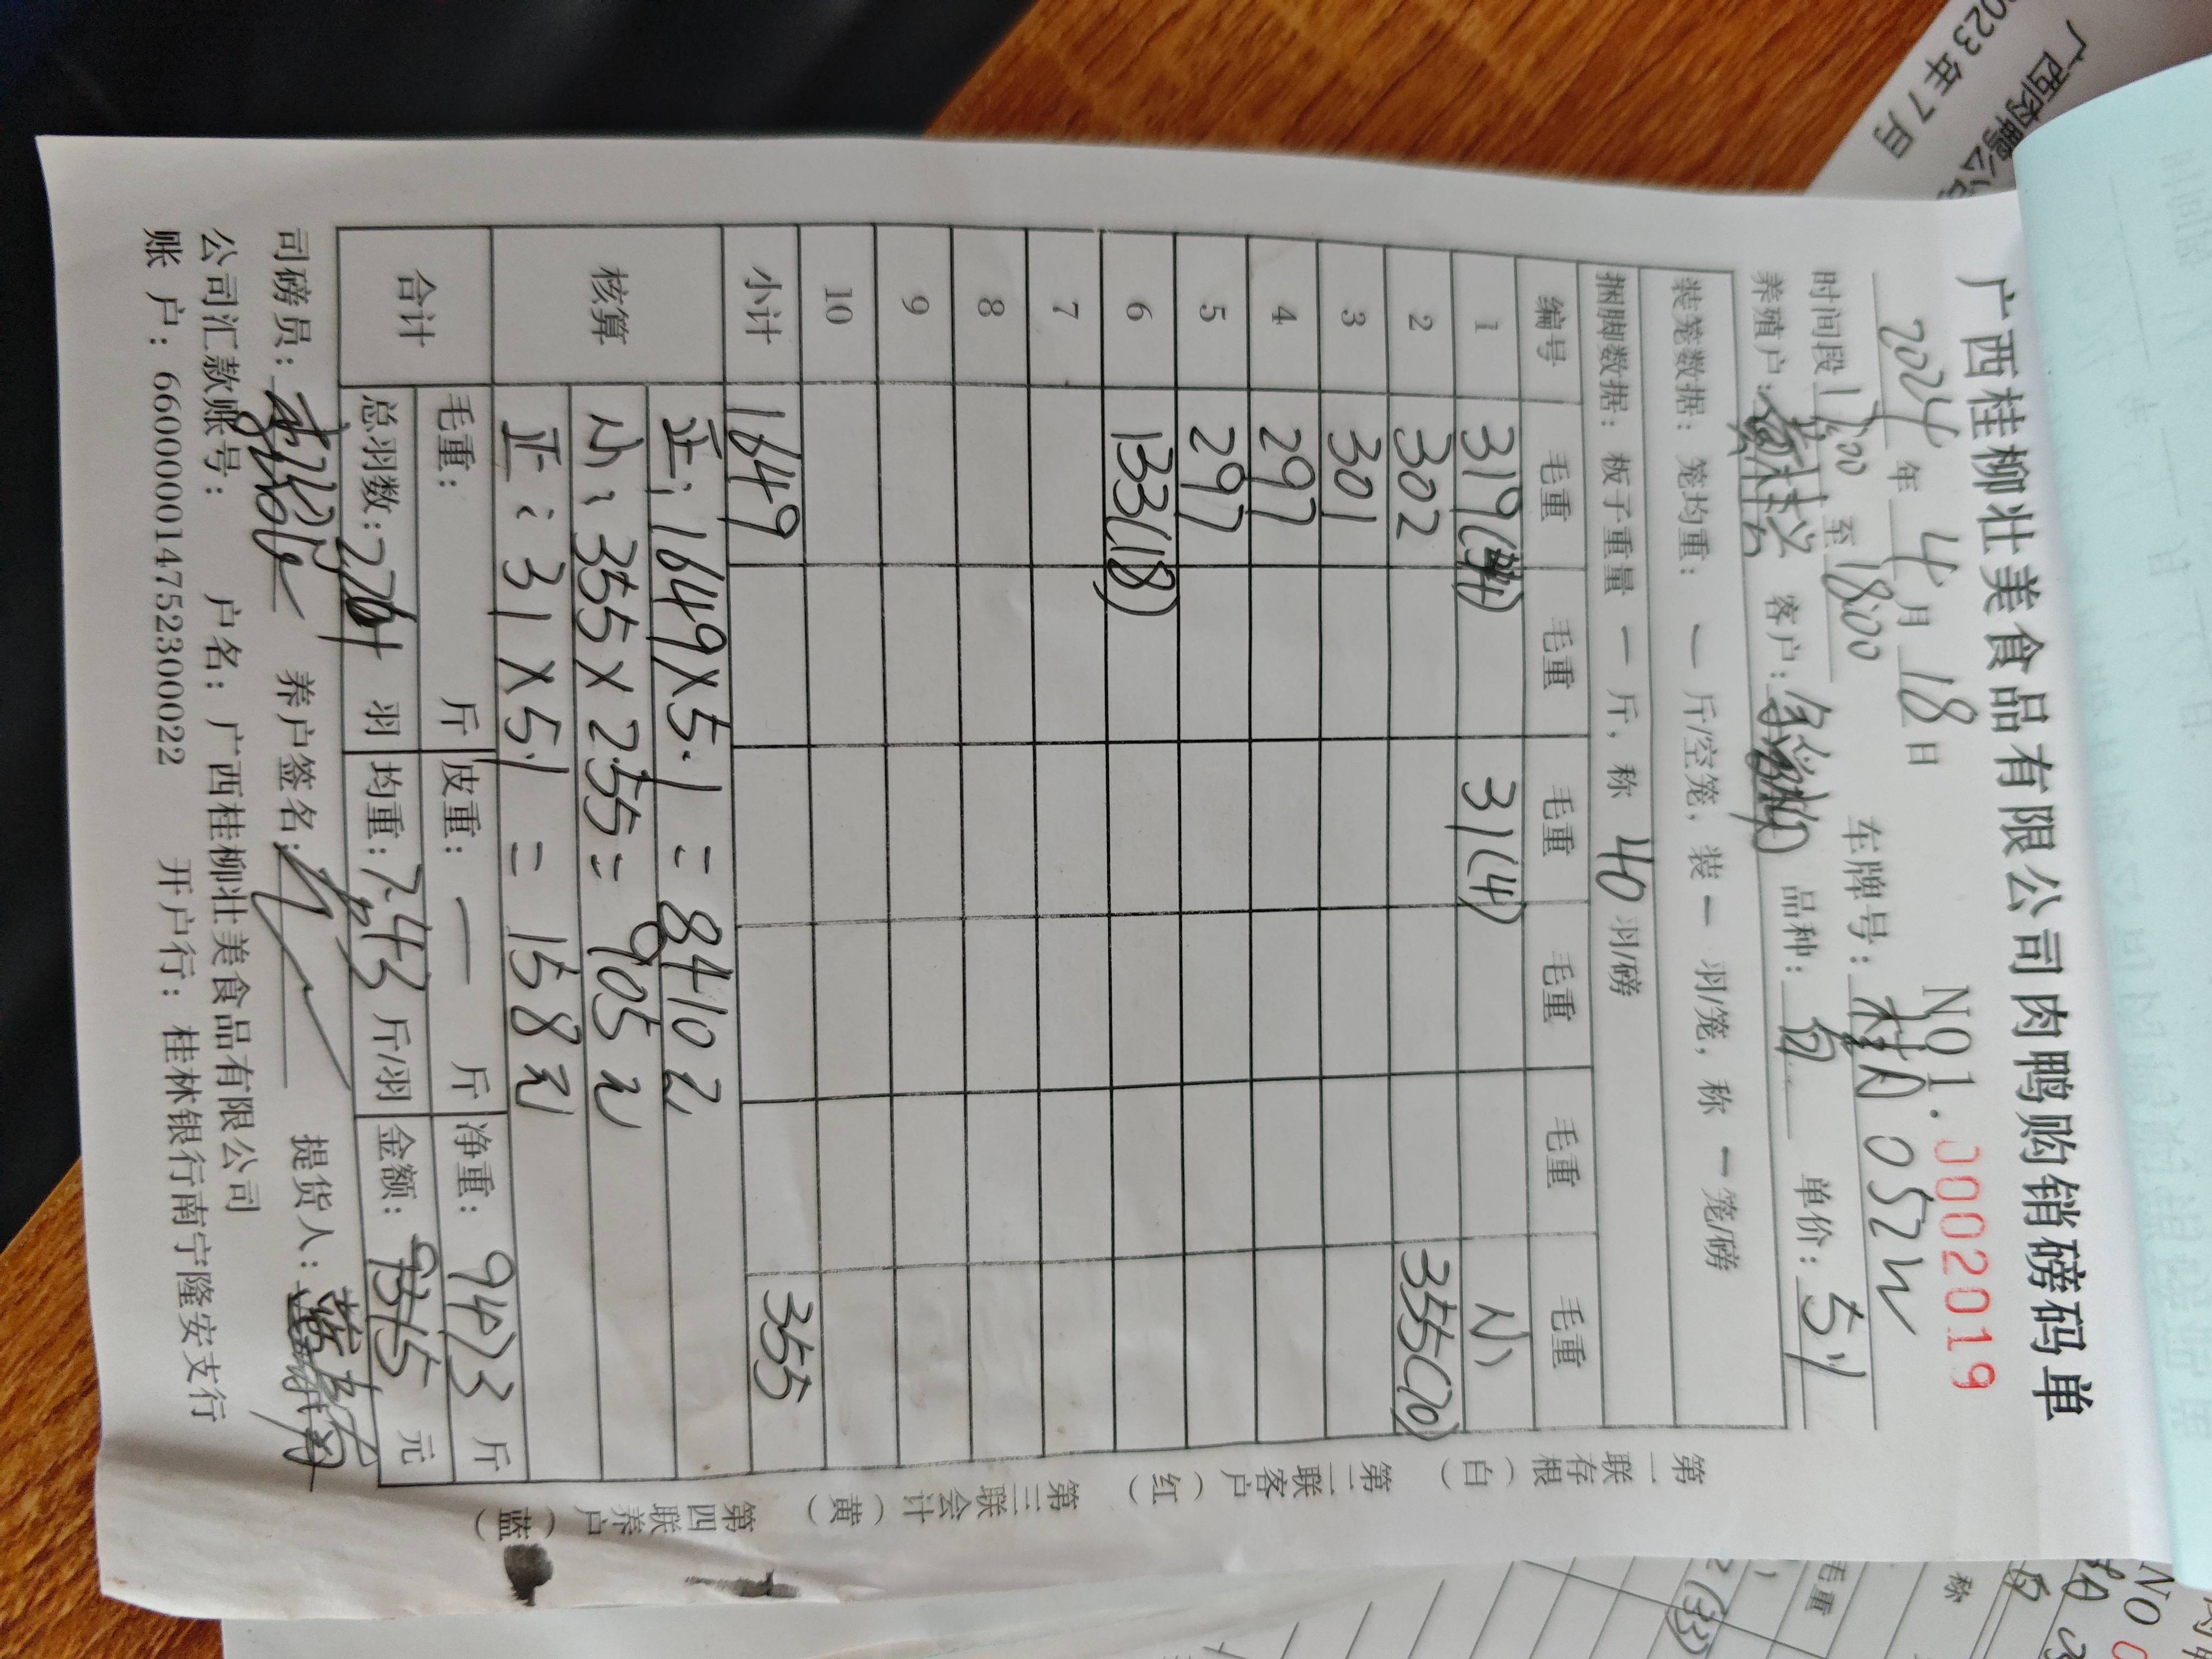 广西桂柳壮美食品有限公司肉鸭购销磅码单
NO1. 0002019
2024年4月18日 车牌号：桂A052W
时间段1700至18:00
养殖户： 客户： 品种：白 单价：5.1
装笼数据：笼均重：一斤/空笼，装一羽/笼，称一笼/磅
捆脚数据：板子重量一斤，称40羽/磅
编号 毛重 毛重 毛重 毛重 毛重 毛重
1 319(44) 31(4) 小
2 302 355(70)
3 301
4 297
5 297
6 133(18)
7
8
9
10
小计 1649 355
核算
正：1649×5.1=8410元
小：355×2.55=905元
正：31×5.1=158元
合计
毛重： 斤 皮重：一 斤 净重：9473斤
总羽数： 羽 均重：7.43斤/羽 金额： 元
司磅员： 养户签名： 提货人：
公司汇款账号： 户名：广西桂柳壮美食品有限公司
账 户：660000014752300022 开户行：桂林银行南宁隆安支行
第一联存根（白） 第二联客户（红） 第三联会计（黄） 第四联养户（蓝）
2023年7月
毛重
称
NO